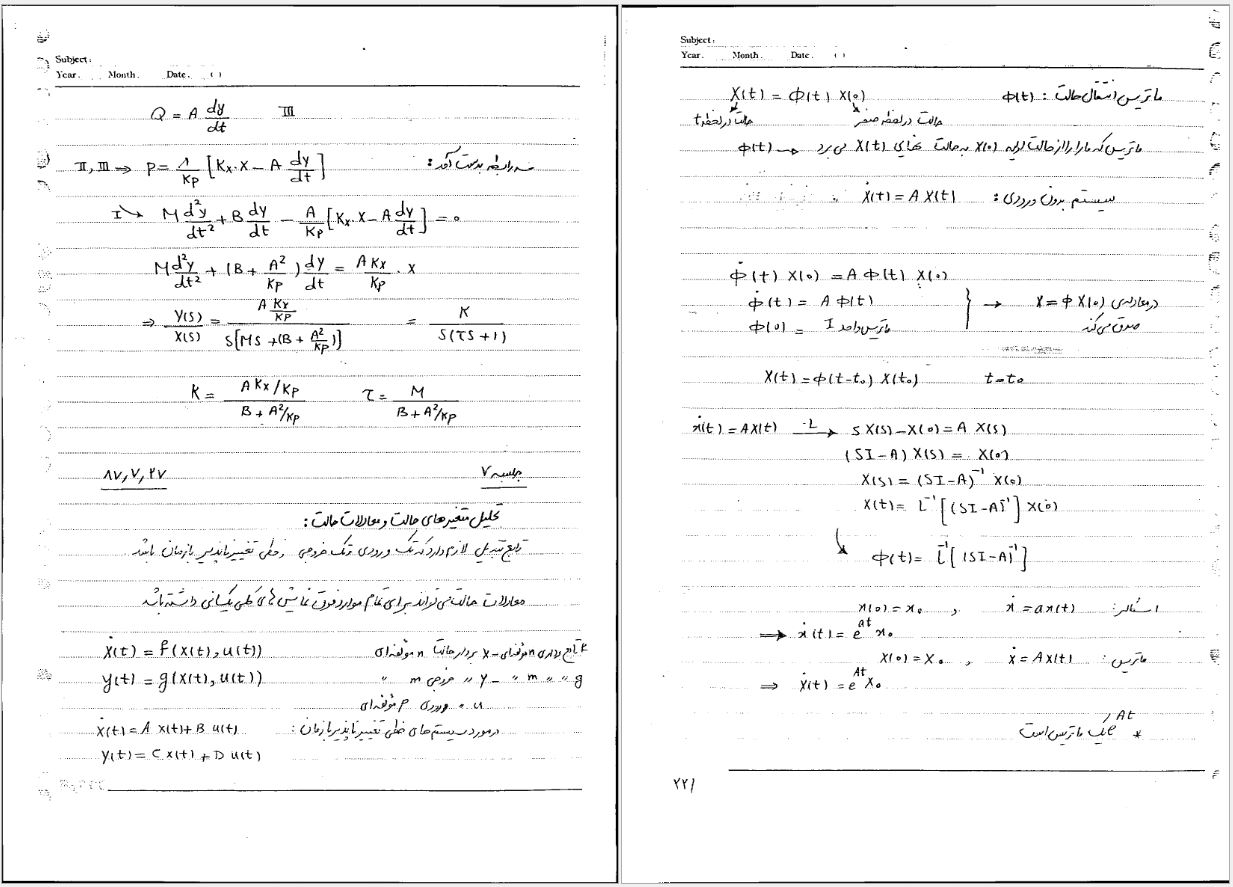 Subject:
Year. Month. Date. ( )
Q = A dy/dt III
II, III ⇒ P = 1/Kp [Kx.X − A dy/dt] : سه رابطه بدست آمد
I ↘ M d²y/dt² + B dy/dt − A/Kp [Kx.X − A dy/dt] = 0
M d²y/dt² + (B + A²/Kp) dy/dt = A Kx/Kp . X
⇒ Y(s)/X(s) = (A Kx/Kp) / S[MS + (B + A²/Kp)] = K / S(τS + 1)
K = (A Kx/Kp) / (B + A²/Kp) τ = M / (B + A²/Kp)
جلسه ۷ ۸۷,۷,۲۷
تحلیل متغیرهای حالت و معادلات حالت :
تابع تبدیل لازم دارد که تک ورودی تک خروجی و خطی تغییرناپذیر با زمان باشد
معادلات حالت می تواند برای تمام موارد فوق نمایش های کلی یکسانی داشته باشد
ẋ(t) = f(x(t), u(t)) تابع برداری n مؤلفه‌ای – X بردار حالت n مؤلفه‌ای
y(t) = g(x(t), u(t)) g " " m " – y " خروجی m "
u " ورودی p مؤلفه‌ای
ẋ(t) = A x(t) + B u(t) در مورد سیستم های خطی تغییرناپذیر با زمان :
y(t) = C x(t) + D u(t)
Subject:
Year. Month. Date. ( )
ماتریس انتقال حالت : φ(t) X(t) = φ(t) X(0)
حالت در لحظه صفر حالت در لحظه t
ماتریس که ما را از حالت اولیه X(0) به حالت نهایی X(t) می برد → φ(t)
سیستم بدون ورودی : Ẋ(t) = A X(t)
φ̇(t) X(0) = A φ(t) X(0)
φ̇(t) = A φ(t)
φ(0) = I ماتریس واحد } → در معادله‌ی X = φ X(0)
صدق می کند
X(t) = φ(t-t₀) X(t₀) t=t₀
ẋ(t) = AX(t) L→ S X(S) − X(0) = A X(S)
(SI − A) X(S) = X(0)
X(S) = (SI − A)⁻¹ X(0)
X(t) = L⁻¹[(SI − A)⁻¹] X(0)
φ(t) = L⁻¹[(SI − A)⁻¹]
اسکالر: ẋ = ax(t) , x(0) = x₀
⇒ x(t) = e^at x₀
ماتریس : ẋ = Ax(t) , X(0) = X₀
⇒ X(t) = e^At X₀
* e^At یک ماتریس است
۲۲/